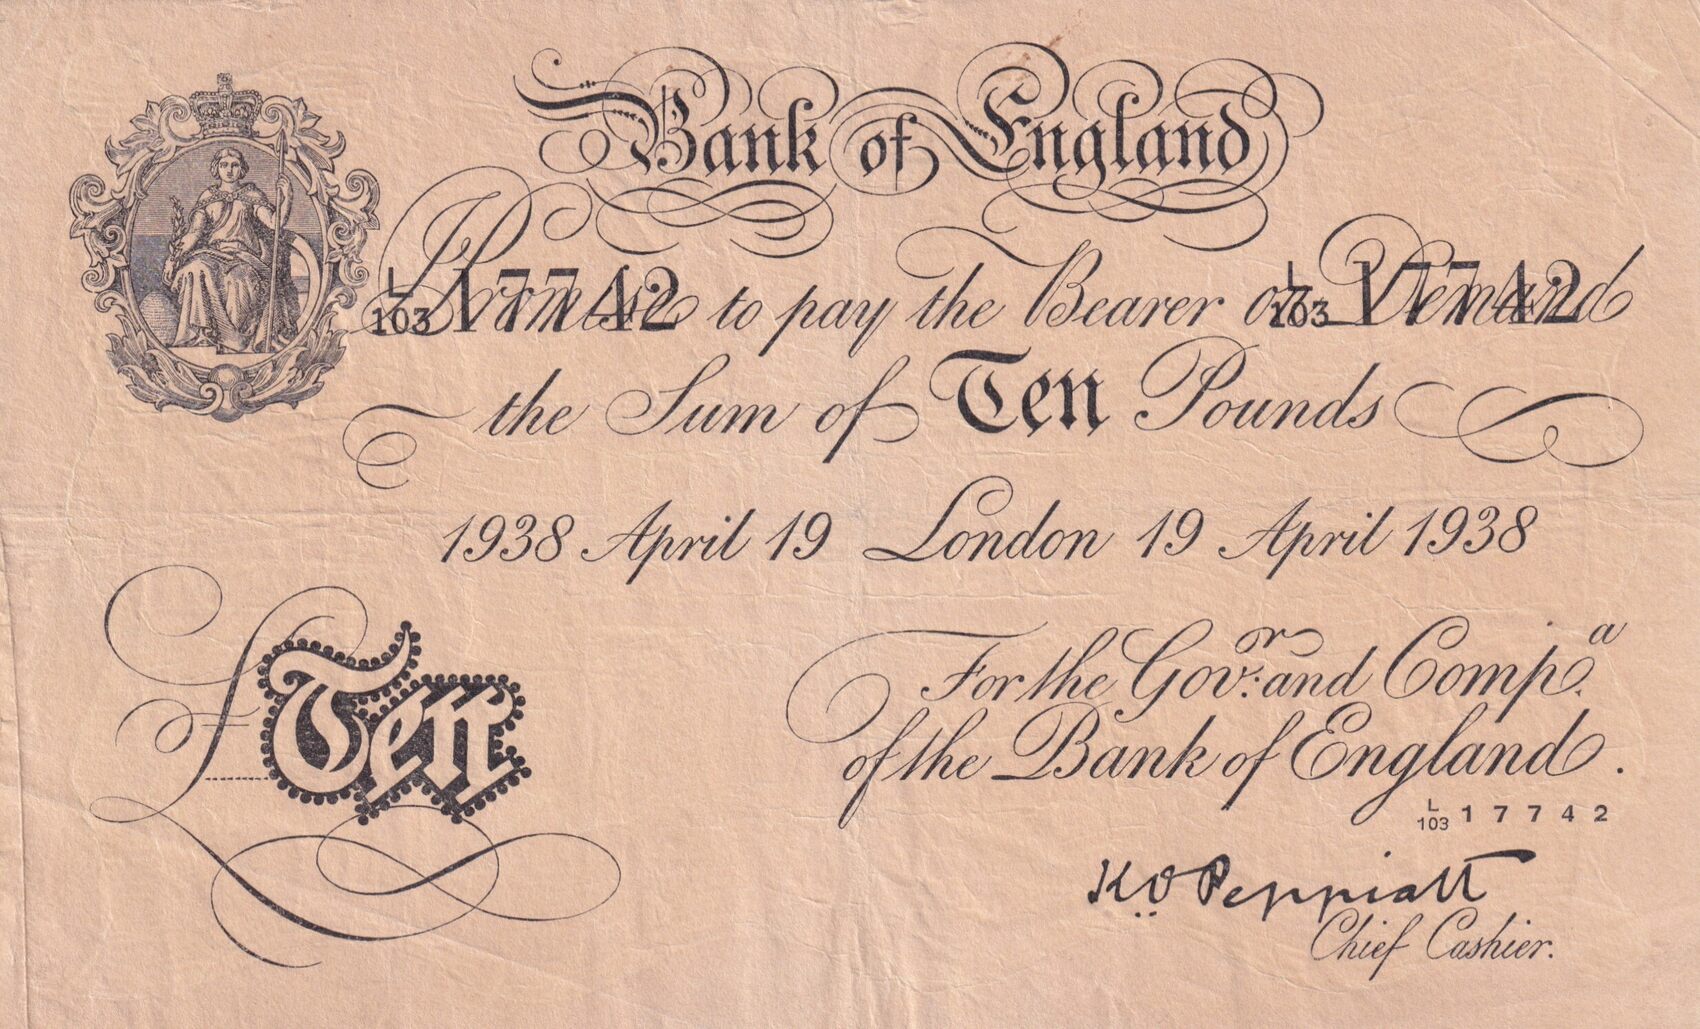 Bank of England
L/103 17742 L/103 17742
I Promise to pay the Bearer on Demand
the Sum of Ten Pounds
1938 April 19 London 19 April 1938
£Ten
For the Gov.or and Comp.a
of the Bank of England.
L/103 17742
K.O. Peppiatt
Chief Cashier.